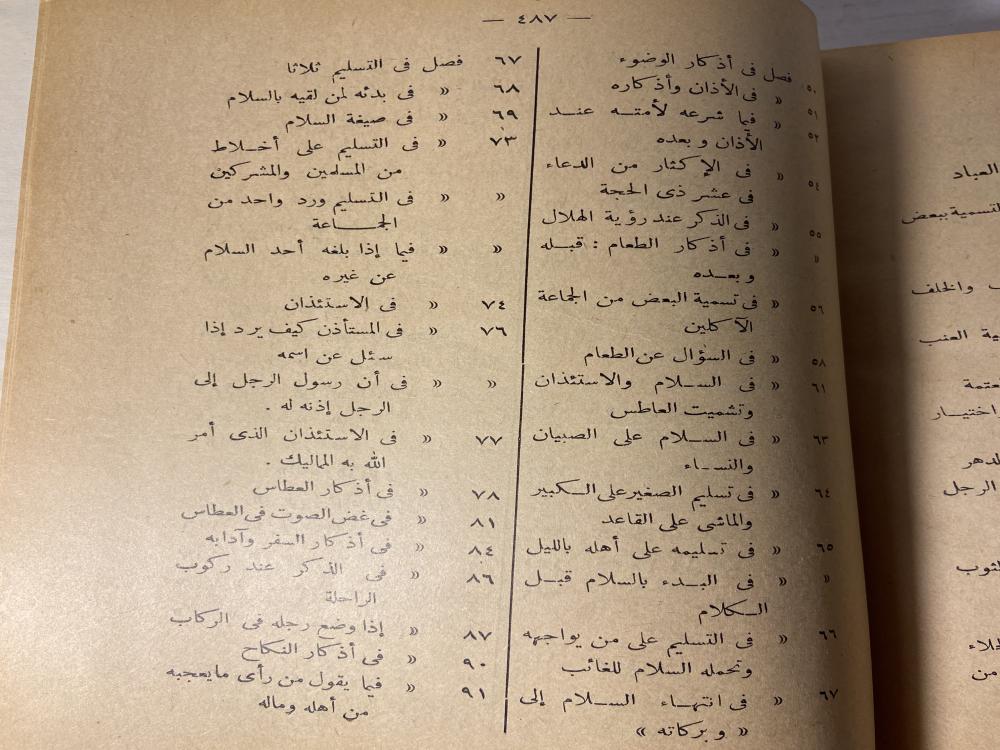 — ٤٨٧ —
٥٠ فصل فى أذكار الوضوء
٥١ « فى الأذان وأذكاره
٥٢ « فيما شرعه لأمته عند
الأذان وبعده
٥٤ « فى الإكثار من الدعاء
فى عشر ذى الحجة
٥٥ « فى الذكر عند رؤية الهلال
« « فى أذكار الطعام : قبله
وبعده
٥٦ « فى تسمية البعض من الجماعة
الآكلين
٥٨ « فى السؤال عن الطعام
٦١ « فى السلام والاستئذان
وتشميت العاطس
٦٣ « فى السلام على الصبيان
والنساء
٦٤ « فى تسليم الصغير على الكبير
والماشى على القاعد
٦٥ « فى تسليمه على أهله بالليل
« « فى البدء بالسلام قبل
الكلام
٦٦ « فى التسليم على من يواجهه
وتحمله السلام للغائب
٦٧ « فى انتهاء السلام إلى
« وبركاته »
٦٧ فصل فى التسليم ثلاثا
٦٨ « فى بدئه لمن لقيه بالسلام
٦٩ « فى صيغة السلام
٧٣ « فى التسليم على أخلاط
من المسلمين والمشركين
« « فى التسليم ورد واحد من
الجماعة
« « فيما إذا بلغه أحد السلام
عن غيره
٧٤ « فى الاستئذان
٧٦ « فى المستأذن كيف يرد إذا
سئل عن اسمه
« « فى أن رسول الرجل إلى
الرجل إذنه له .
٧٧ « فى الاستئذان الذى أمر
الله به المماليك .
٧٨ « فى أذكار العطاس
٨١ « فى غض الصوت فى العطاس
٨٤ « فى أذكار السفر وآدابه
٨٦ « فى الذكر عند ركوب
الراحلة
٨٧ « إذا وضع رجله فى الركاب
٩٠ « فى أذكار النكاح
٩١ « فيما يقول من رأى ما يعجبه
من أهله وماله
العباد
التسمية ببعض
والخلف
العنب
اختيار
الرجل
من